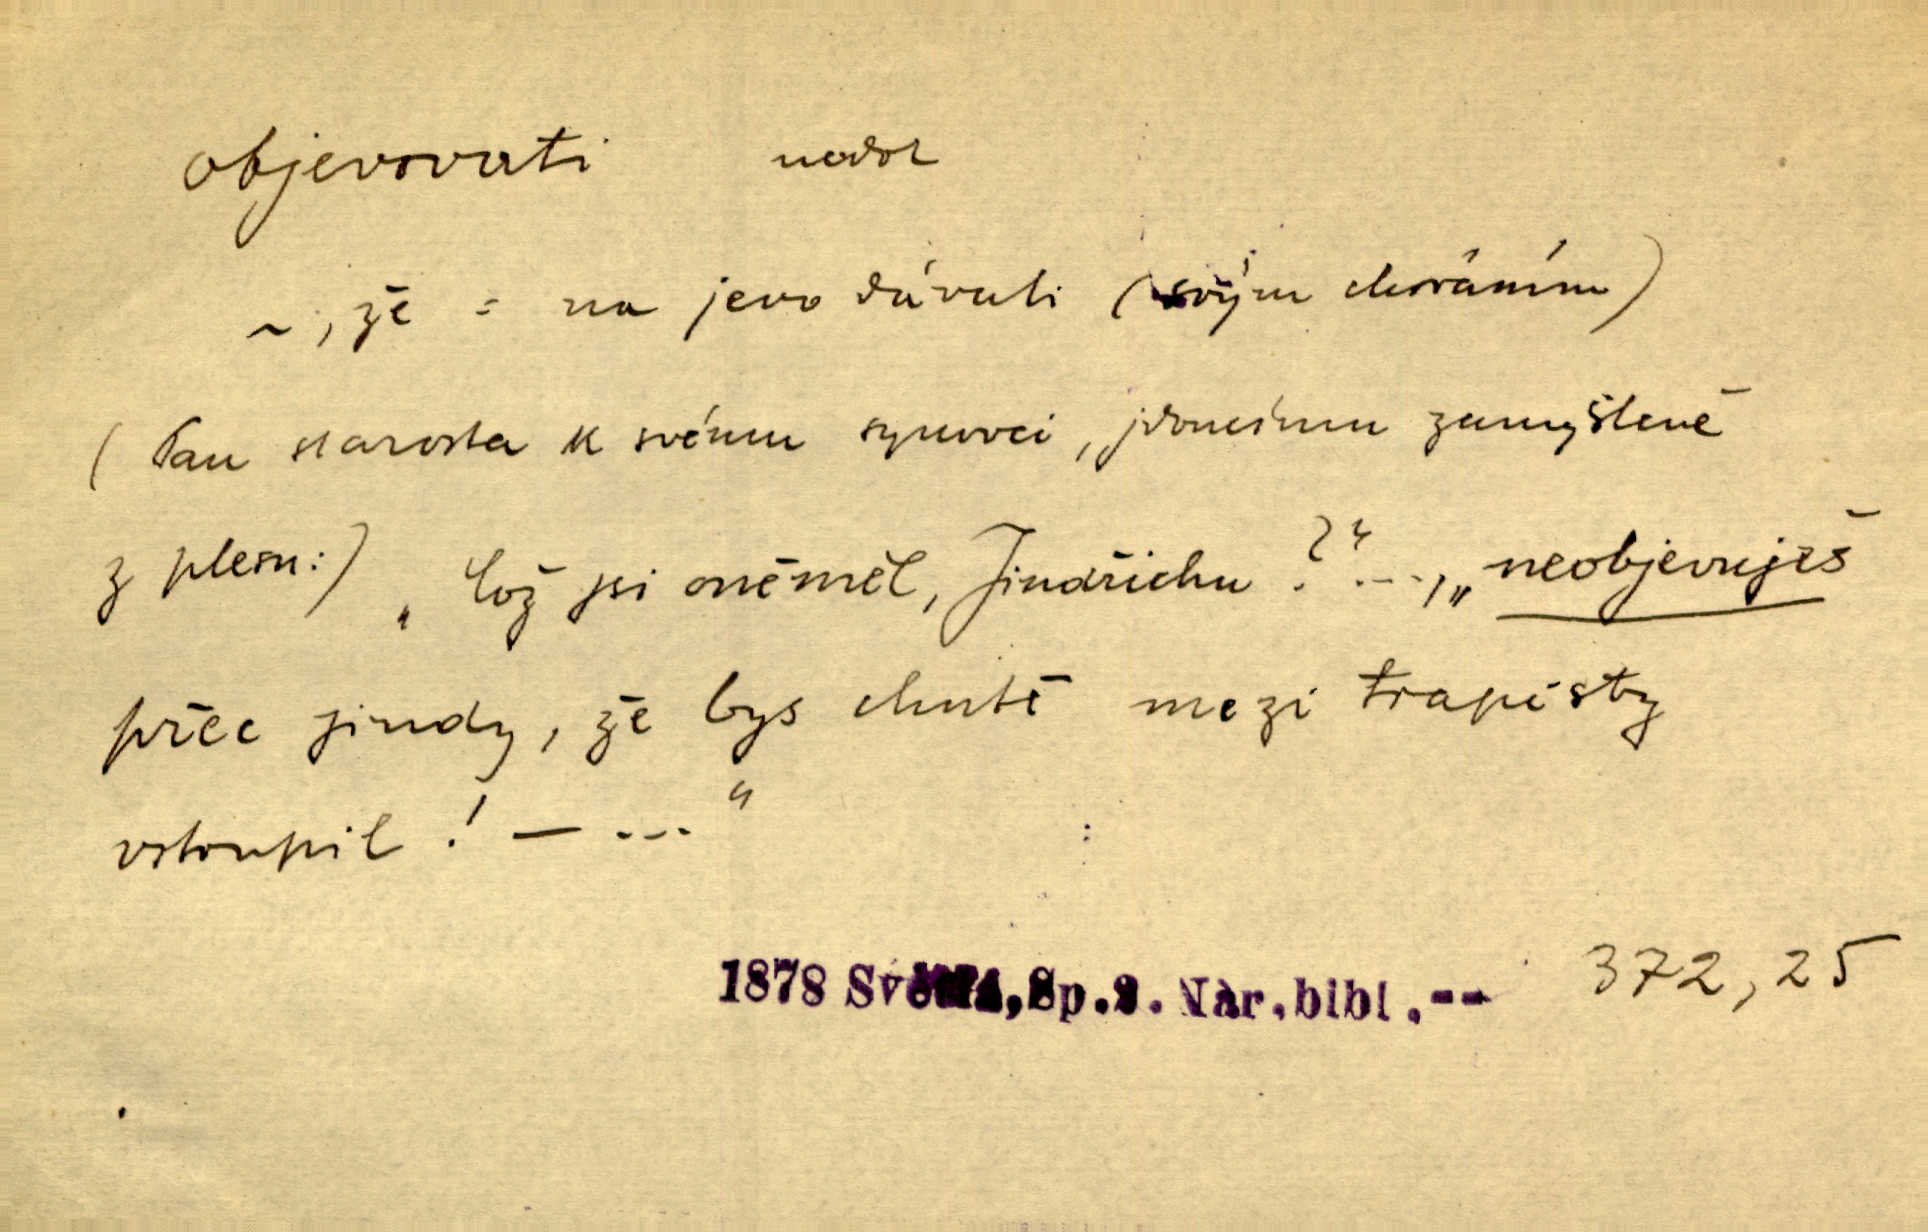 objevovati nedok
~, že = na jevo dávati (svým chováním)
(Pan starosta k svému synovci, jdoucímu zamyšleně
z plesu:) „Což jsi oněměl, Jindřichu?“ ..., „neobjevuješ
přec jindy, že bys chutě mezi trapisty
vstoupil! — ...“
1878 Světlá, Sp.2. Nár.bibl.-- 372,25